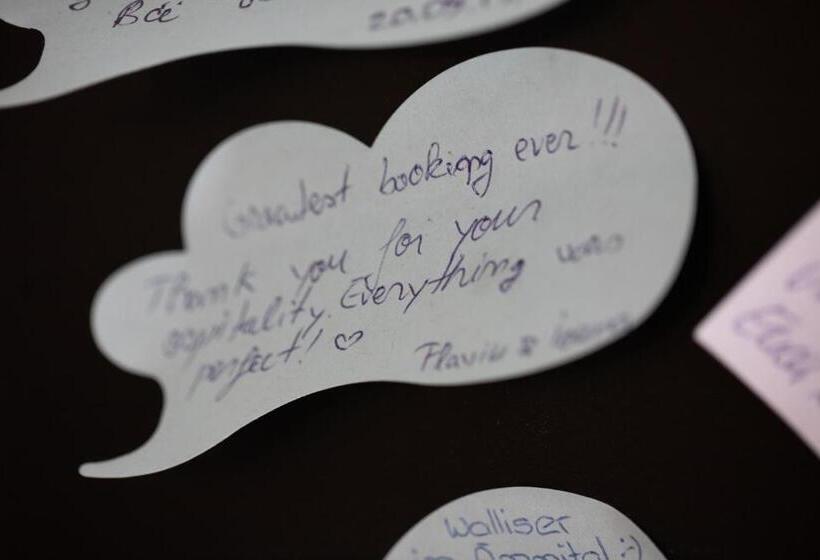 Все
20.09.
Greatest booking ever!!!
Thank you for your
ospitality. Everything was
perfect! ♡
Flaviu &
Walliser
im :)